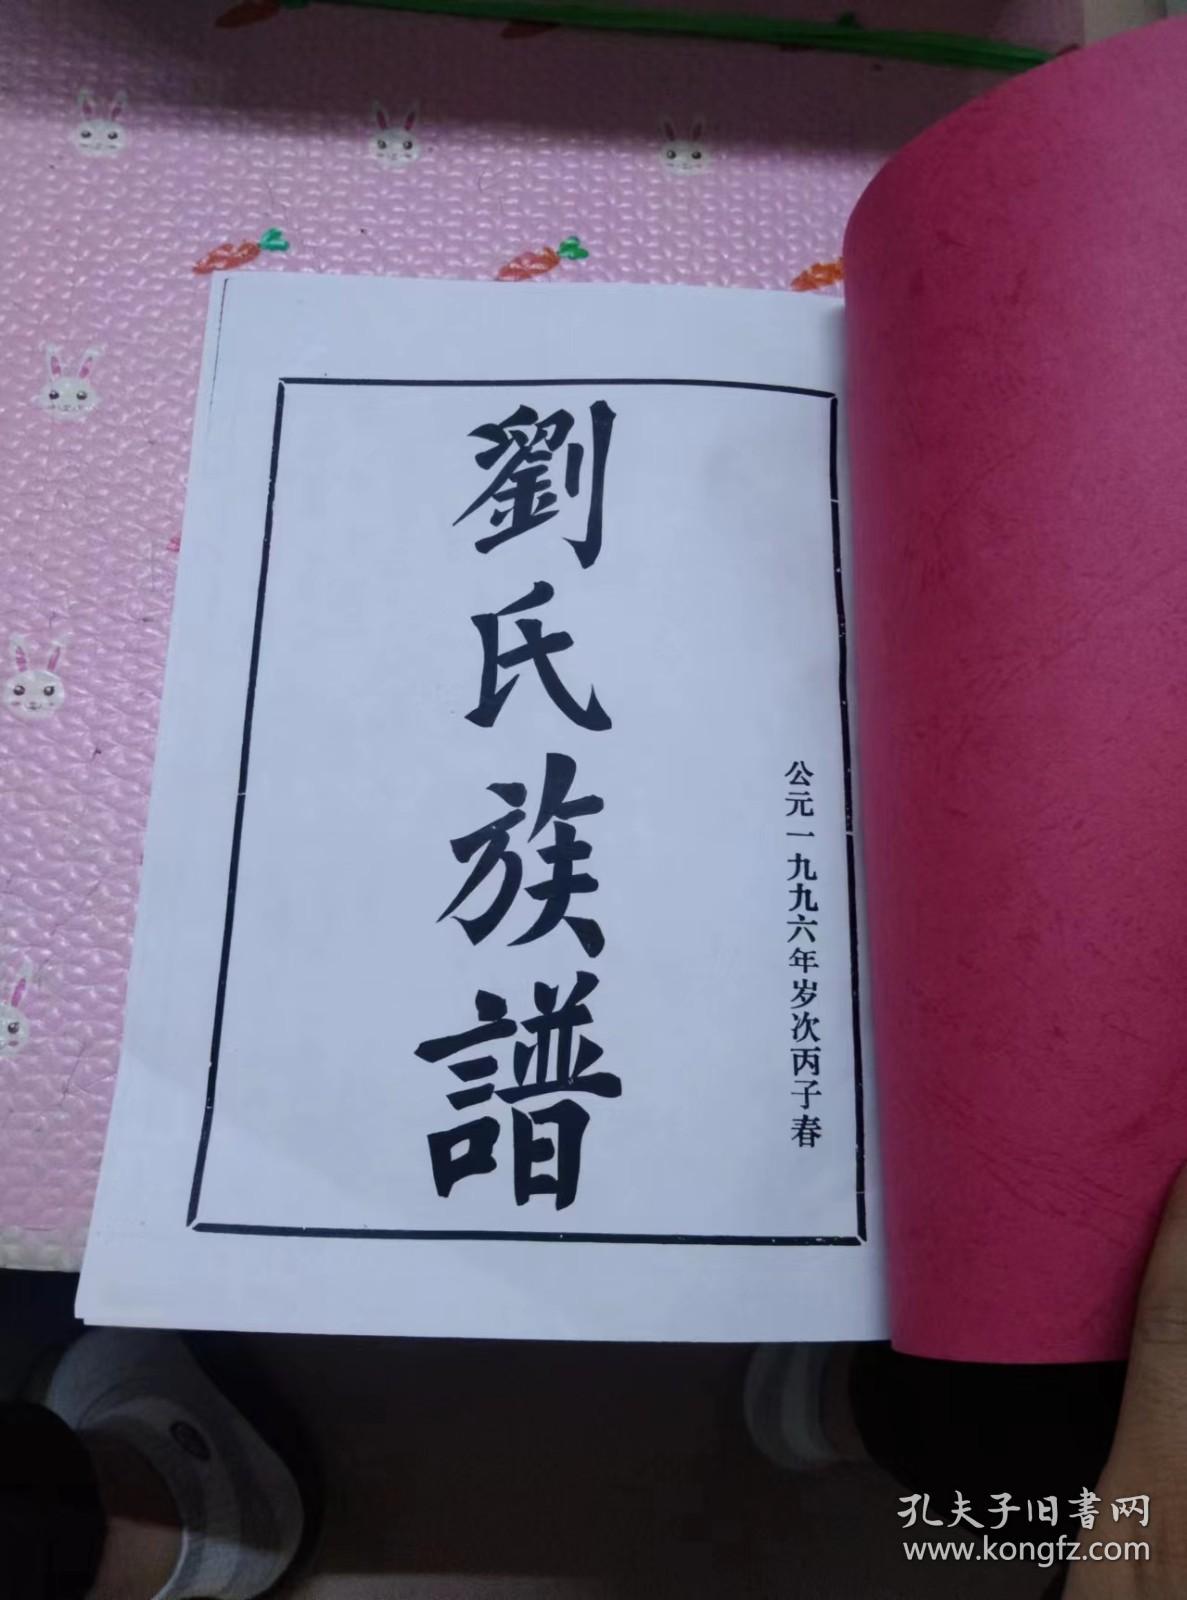 公元一九九六年岁次丙子春
劉氏族譜
孔夫子旧書网
www.kongfz.com